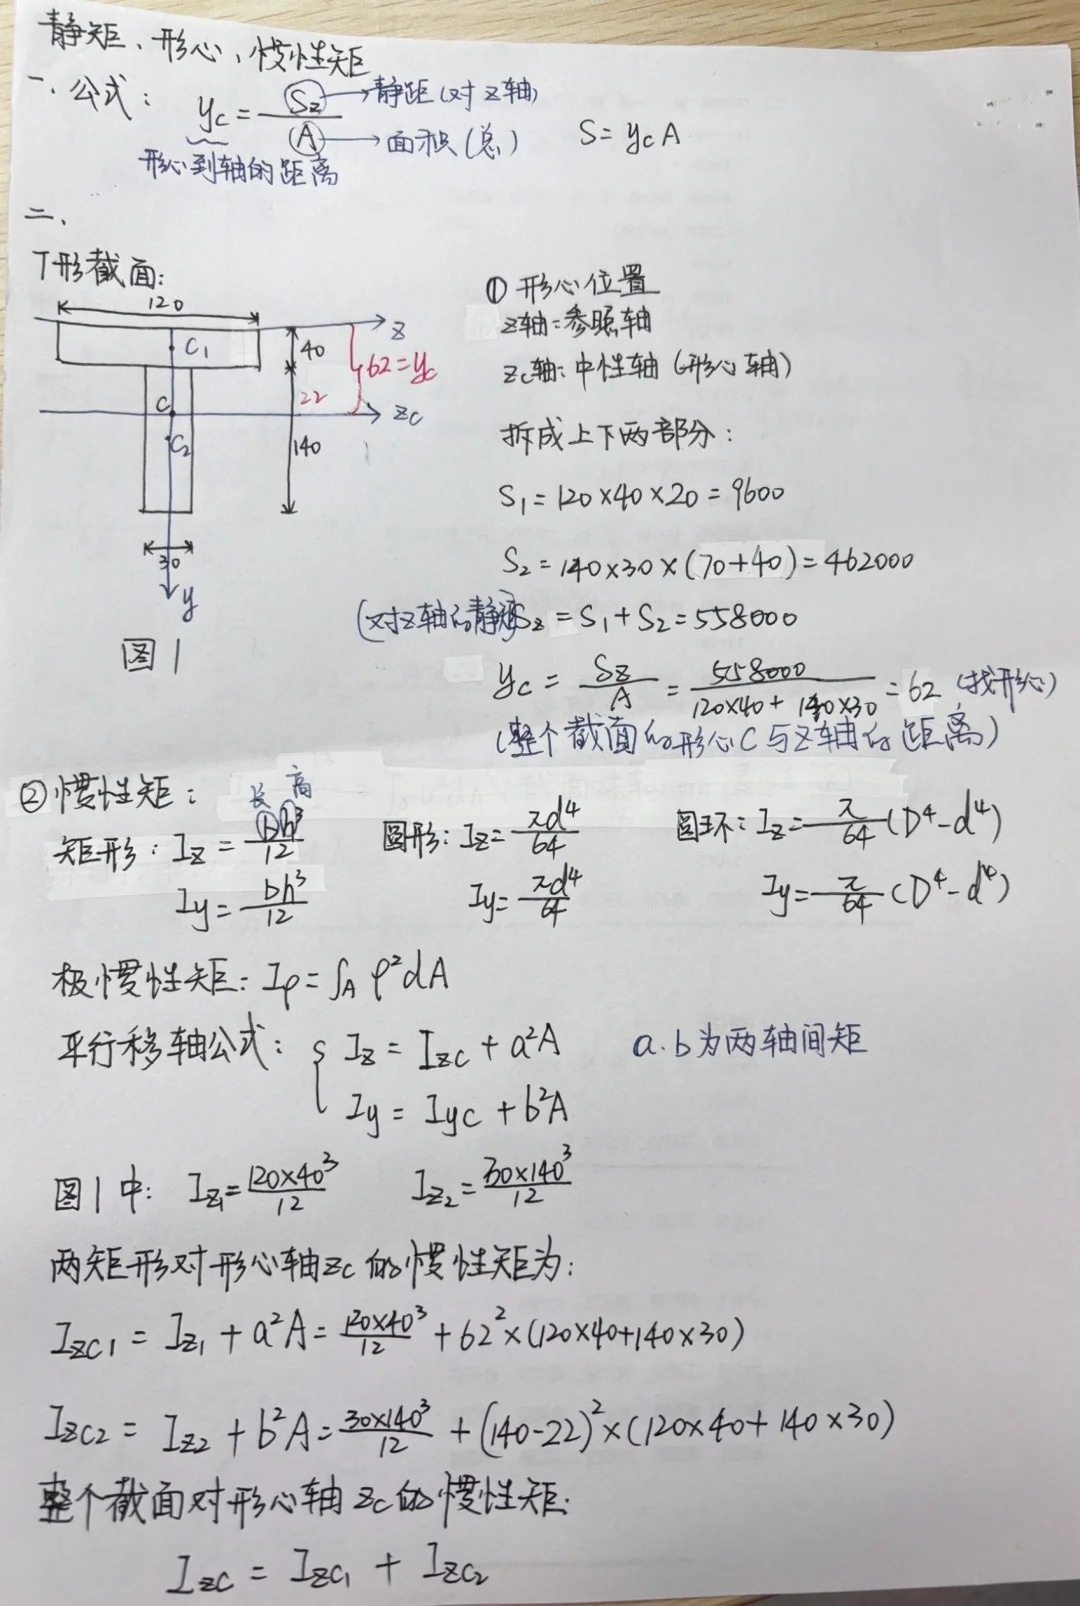 静矩、形心、惯性矩
一、公式：
yc = Sz/A
Sz → 静距(对z轴)
A → 面积(总)
S = ycA
形心到轴的距离
二、
T形截面：
120
z
C1
40
62=yc
C
22
zc
C2
140
30
y
图1
① 形心位置
z轴：参照轴
zc轴：中性轴(形心轴)
拆成上下两部分：
S1=120×40×20=9600
S2=140×30×(70+40)=462000
(对z轴的静矩)Sz=S1+S2=558000
yc = Sz/A = 558000/(120×40+140×30) = 62 (找形心)
(整个截面的形心C与z轴的距离)
② 惯性矩：
长 高
矩形：Iz = bh³/12
圆形：Iz = πd⁴/64
圆环：Iz = π/64 (D⁴-d⁴)
Iy = bh³/12
Iy = πd⁴/64
Iy = π/64 (D⁴-d⁴)
极惯性矩：Iρ = ∫A ρ²dA
平行移轴公式：{ Iz = Izc + a²A
a.b为两轴间矩
Iy = Iyc + b²A
图1中：Iz1 = 120×40³/12 Iz2 = 30×140³/12
两矩形对形心轴zc的惯性矩为：
Izc1 = Iz1 + a²A = 120×40³/12 + 62²×(120×40+140×30)
Izc2 = Iz2 + b²A = 30×140³/12 + (140-22)²×(120×40+140×30)
整个截面对形心轴zc的惯性矩：
Izc = Izc1 + Izc2